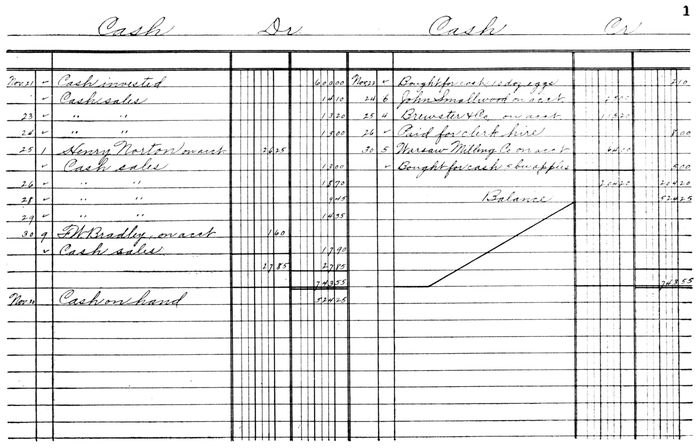 1
Cash Dr Cash Cr
Nov 21 ✓ Cash invested 600 00 Nov 22 ✓ Bought for cash 10 doz eggs 2 10
" ✓ Cash sales 14 10 24 6 John Smallwood on acct 25 00
23 ✓ " " 13 20 25 4 Brewster & Co. on acct 115 20
24 ✓ " " 15 00 26 ✓ Paid for clerk hire 8 00
25 1 Henry Norton on acct 26 25 30 5 Warsaw Milling Co on acct 64 00
✓ Cash sales 13 00 ✓ Bought for cash 5 bu apples 5 00
26 ✓ " " 18 70 204 20 204 20
28 ✓ " " 9 45 Balance 524 25
29 ✓ " " 14 35
30 9 F.W. Bradley, on acct 1 60
✓ Cash sales 17 90
27 85 27 85
743 55 743 55
Nov 30 Cash on hand 524 25